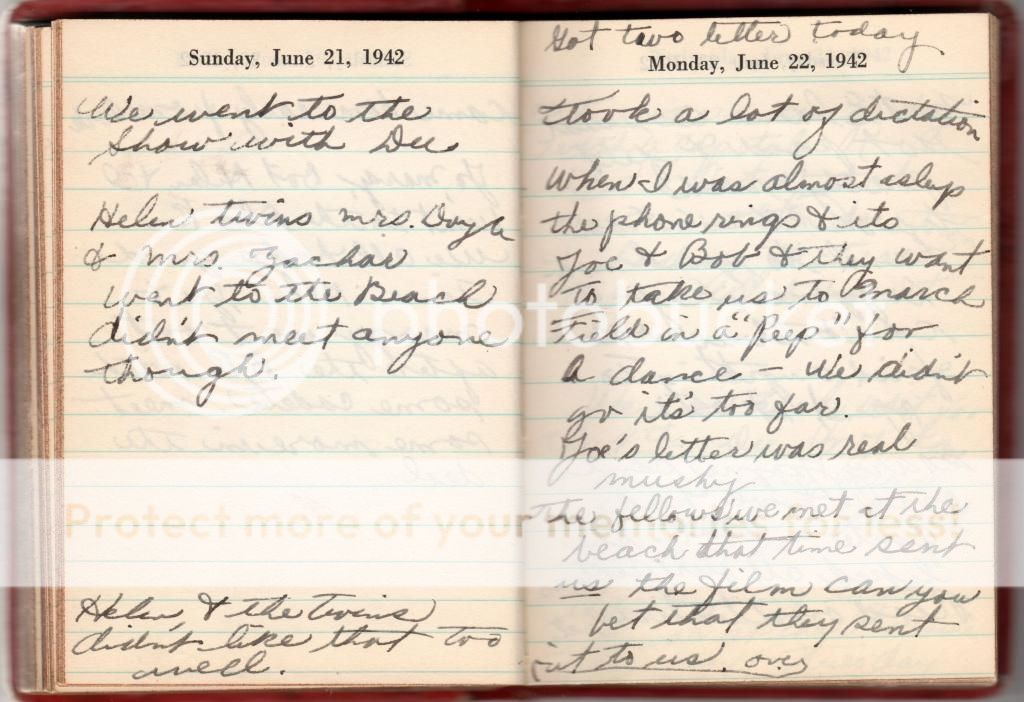 Sunday, June 21, 1942
We went to the
show with Du
Helen twins mrs. Doyle
& Mrs. Zachar
went to the Beach
didn't meet anyone
though.
Helen, & the twins
didn't like that too
well.
Got two letter today
Monday, June 22, 1942
took a lot of dictation
when I was almost asleep
the phone rings & its
Joe & Bob & they want
to take us to March
Field in a "Peep" for
a dance - We didn't
go it's too far.
Joe's letter was real
mushy
The fellows we met at the
beach that time sent
us the film can you
bet that they sent
it to us. over
photobucket
Protect more of your memories for less!